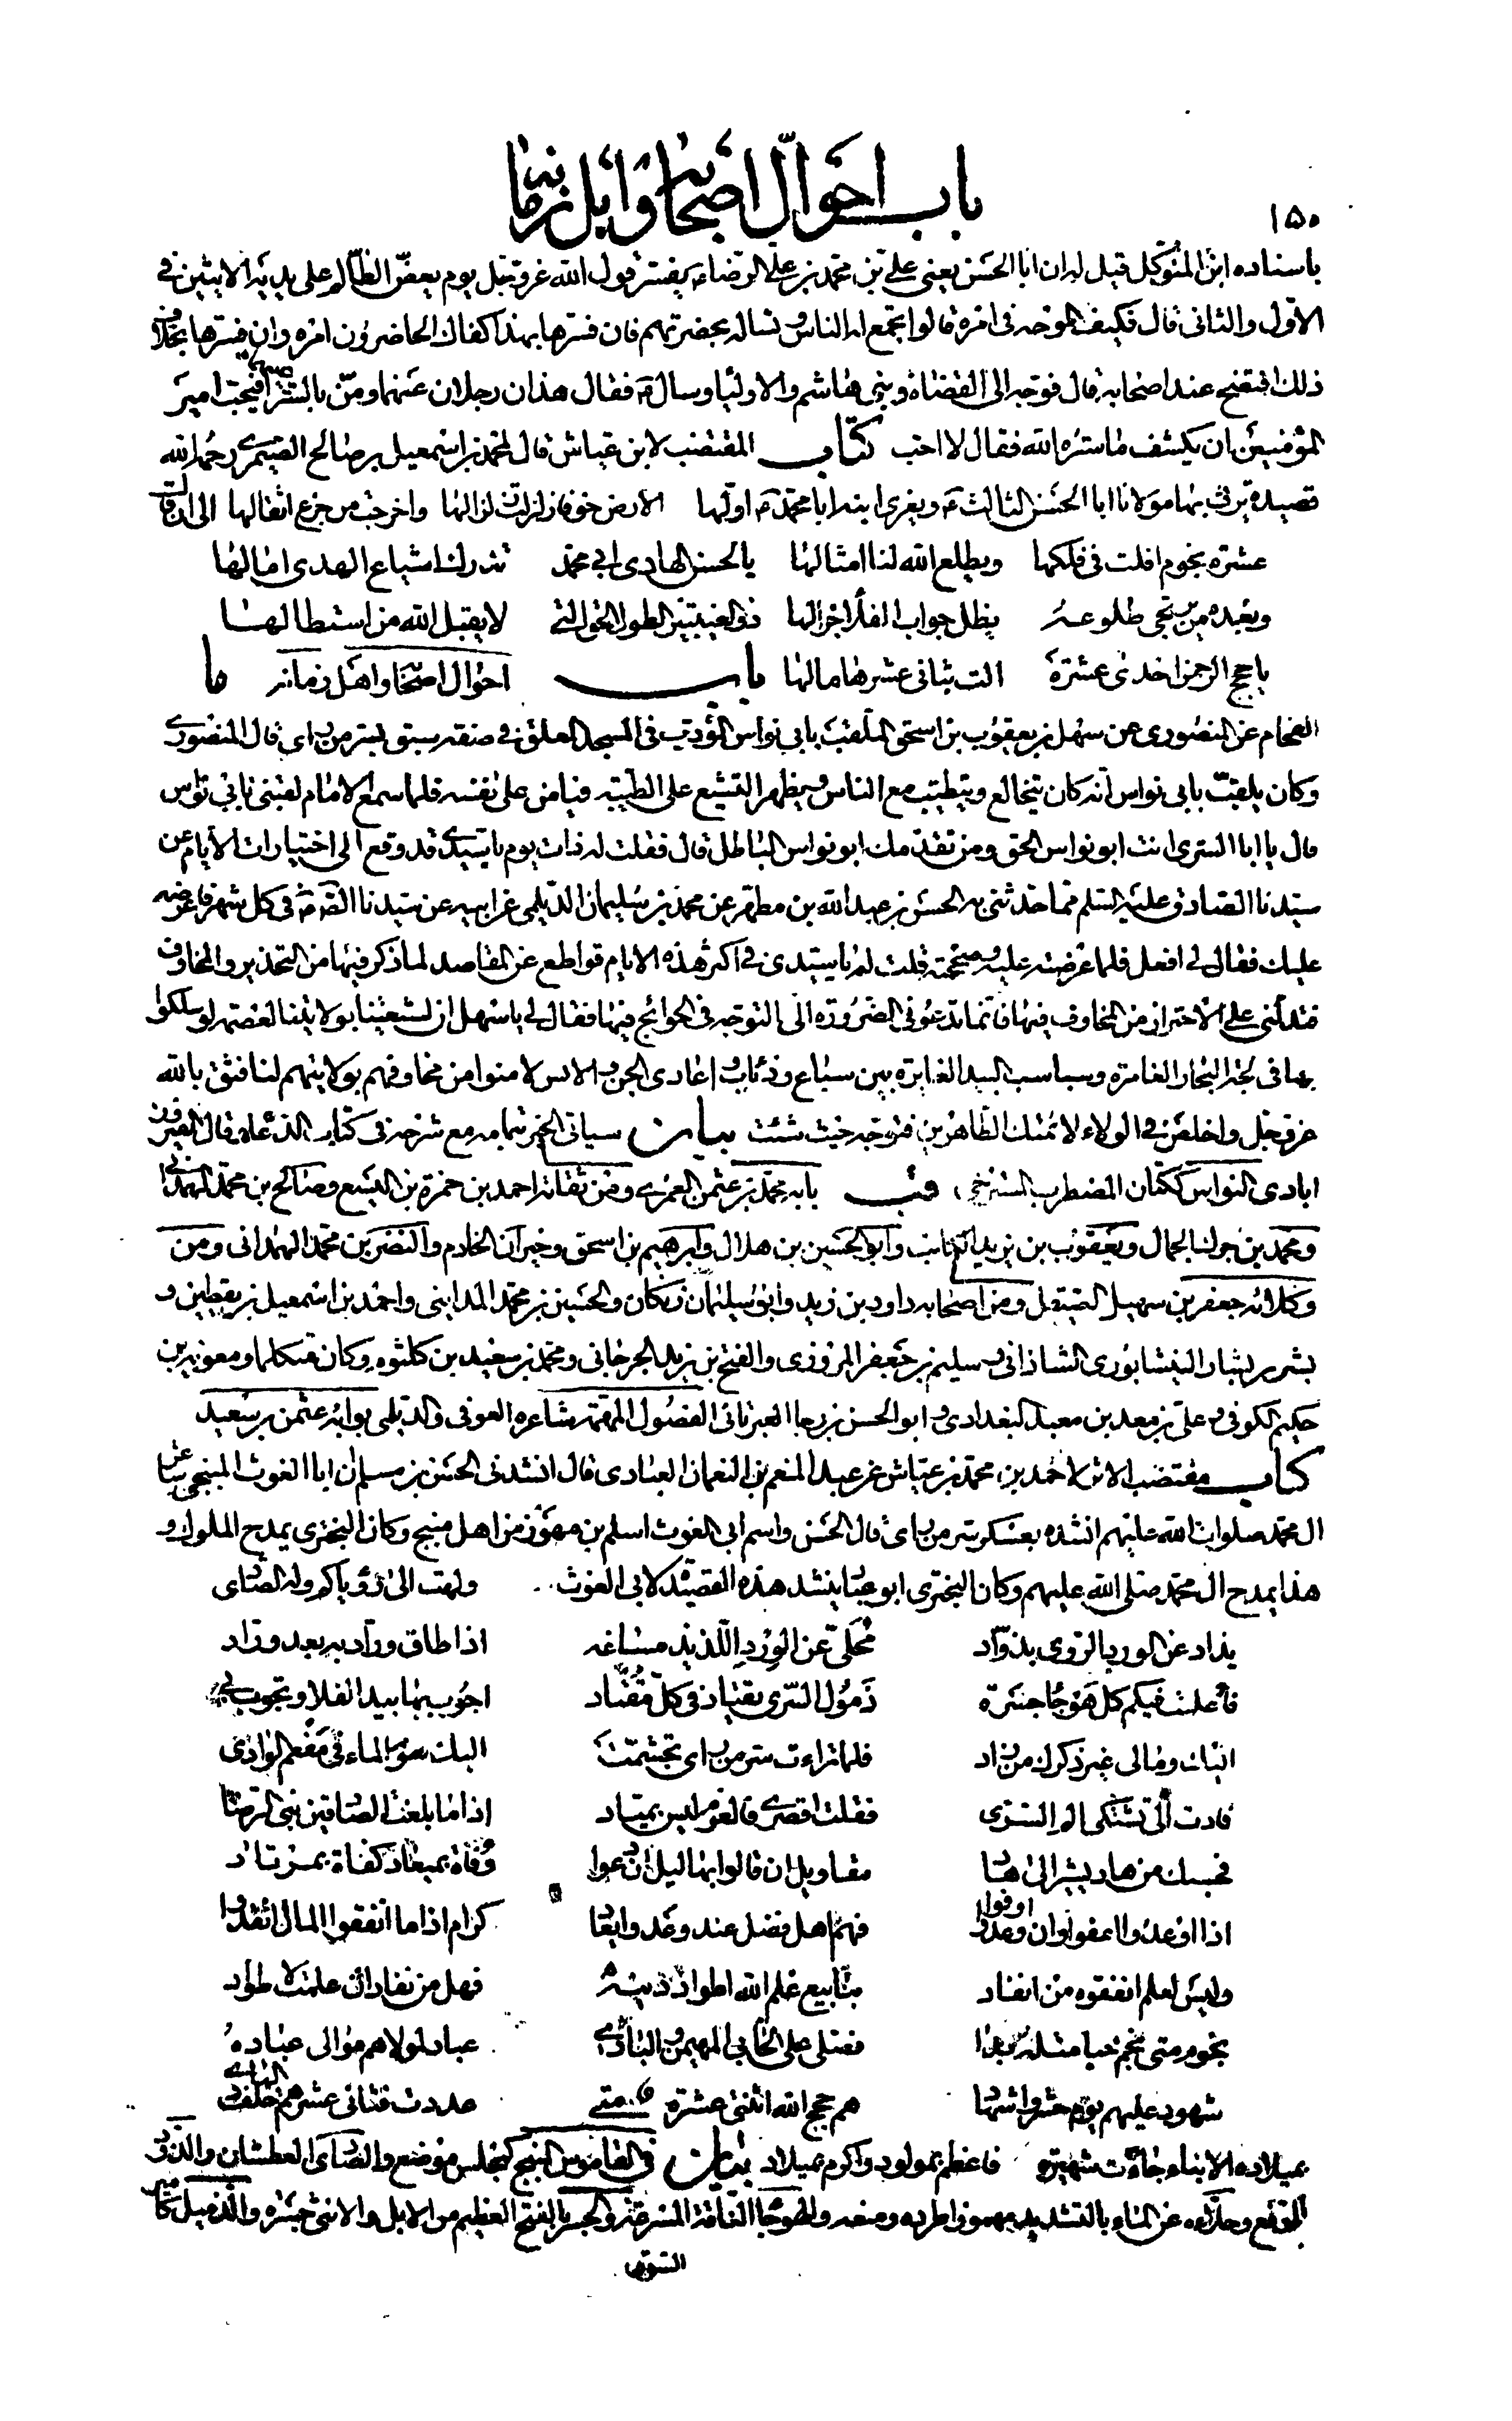 ١٥٠
باب احوال اصحابه واهل زمانه
باسناده ان المتوكل قيل له ان ابا الحسن يعني علي بن محمد بن علي الرضا ع يفسر قول الله عز وجل يوم يعض الظالم على يديه الايتين في
الاول والثاني قال فكيف الوجه في امره قالوا تجمع له الناس وتساله بحضرتهم فان فسرها بهذا كفاك الحاضرون امره وان فسرها بخلاف
ذلك افتضح عند اصحابه قال فوجه الى القضاة وبني هاشم والاولياء وسال ع فقال هذان رجلان كنى عنهما ومن بالستر عليهما افيحب امير
المؤمنين ان يكشف ما ستره الله فقال لا احب كتاب المقتضب لابن عياش قال لمحمد بن اسمعيل بن صالح الصيمري رحمه الله
قصيدة يرثي بها مولانا ابا الحسن الثالث ع ويعزي ابنه ابا محمد ع اولها الارض خوفا زلزلت زلزالها واخرجت من جزع اثقالها الى ان قال
عشرة نجوم افلت في فلكها ويطلع الله لنا امثالها بالحسن الهادي ابي محمد تدرك اشياع الهدى امالها
وبعده من يرتجى طلوعه يظل جواب الفلا جزالها ذو الغيبتين الطول الحق التي لا يقبل الله من استطالها
يا حجج الرحمن احدى عشرة الت بثاني عشرها مالها باب احوال اصحابه واهل زمانه ما
الفحام عن المنصوري عن سهل بن يعقوب بن اسحق الملقب بابي نواس المؤدب في المسجد المعلق في صفة سبق بسر من راى قال المنصوري
وكان يلقب بابي نواس لانه كان يتخالع ويتطيب مع الناس ويظهر التشيع على الطيبة فيامن على نفسه فلما سمع الامام لقبني بابي نواس
قال يا ابا السري انت ابو نواس الحق ومن تقدمك ابو نواس الباطل قال فقلت له ذات يوم يا سيدي قد وقع الى اختيارات الايام عن
سيدنا الصادق عليه السلم مما حدثني به الحسن بن عبد الله بن مطهر عن محمد بن سليمان الديلمي عن ابيه عن سيدنا الصادق ع في كل شهر فاعرضه
عليك فقال لي افعل فلما عرضته عليه وصححته قلت له يا سيدي في اكثر هذه الايام قواطع عن المقاصد لما ذكر فيها من التحذير والمخاوف
فتدلني على الاحتراز من المخاوف فيها فانما تدعوني الضرورة الى التوجه في الحوائج فيها فقال لي يا سهل ان لشيعتنا بولايتنا لعصمة لو سلكوا
بها في لجة البحار الغامرة وسباسب البيد الغابرة بين سباع وذئاب واعادي الجن والانس لامنوا من مخاوفهم بولايتهم لنا فثق بالله
عز وجل واخلص في الولاء لائمتك الطاهرين فتوجه حيث شئت بيان سياتي الخبر بتمامه مع شرحه في كتاب الدعاء وقال الفيروز
ابادي النواس ككتان المضطرب المسترخي قب بابه محمد بن عثمن العمري ومن ثقاته احمد بن حمزة بن اليسع وصالح بن محمد الهمداني
ومحمد بن جزك الجمال ويعقوب بن يزيد الكاتب وابو الحسين بن هلال وابرهيم بن اسحق وخيران الخادم والنضر بن محمد الهمداني ومن
وكلائه جعفر بن سهيل الصيقل ومن اصحابه داود بن زيد وابو سليمان زنكان والحسين بن محمد المدايني واحمد بن اسمعيل بن يقطين و
بشر بن بشار النيشابوري الشاذاني وسليم بن جعفر المروزي والفتح بن يزيد الجرجاني ومحمد بن سعيد بن كلثوم وكان متكلما ومعوية بن
حكيم الكوفي وعلي بن معد بن معبد البغدادي وابو الحسن بن رجا العبرتائي الفصول المهمة شاعره العوفي والديلمي بوابه عثمن بن سعيد
كتاب مقتضب الاثر لاحمد بن محمد بن عياش عن عبد المنعم بن النعمان العبادي قال انشدني الحسن بن مسلم ان ابا الغوث المنبجي شاعر
ال محمد صلوات الله عليهم انشده بعسكر سر من راى قال الحسن واسم ابي الغوث اسلم بن مهوز من اهل منبج وكان البختري يمدح الملوك و
هذا يمدح ال محمد صلى الله عليهم وكان البختري ابو عبادة ينشد هذه القصيدة لابي الغوث ولهت الى رؤياكم وله الصادي
يذاد عن الورد الروي بذواد محلى عن الورد اللذيذ مساغه اذا طاف وراد به بعد وراد
فاعلمت فيكم كل هوجا جسرة ذمول السرى يقتاد في كل مقتاد اجوب بها بيد الفلا وتجوب بي
اليك ومالي غير ذكرك من زاد فلما تراءت سر من راى تجشمت اليك سير الماء في مفعم الوادي
فادت الى تشتكي الم السرى فقلت اقصري فالعزم ليس بمياد اذا ما بلغت الصادقين بني الرضا
فحسبك من هاد يشير الى هاد مقاويل ان قالوا بهاليل ان دعوا وفاة بميعاد كفاة بمرتاد
اذا اوعدوا اعفوا وان وعدوا اوفوا فهم اهل فضل عند وعد وايعاد كرام اذا ما انفقوا المال انفدوا
وليس لعلم انفقوه من انفاد ينابيع علم الله اطواد دينه فهل من نفاد ان علمت لاطواد
نجوم متى نجم خبا مثله بدا فصلى على الخابي المهيمن والبادي عباد لمولاهم موالى عباده
شهود عليهم يوم حشر واشهاد هم حجج الله اثنتى عشرة متى عددت فثاني عشرهم خلف الهادي
بميلاده الانباء جاءت شهيرة فاعظم بمولود واكرم بميلاد بيان في القاموس المنبج كمجلس موضع والصادي العطشان والذود
الدفع وحلاءه عن الماء بالتشديد مهموزا طرده ومنعه والهوجا الناقة المسرعة والجسر بالفتح العظيم من الابل والانثى جسرة والذميل كامير
السير